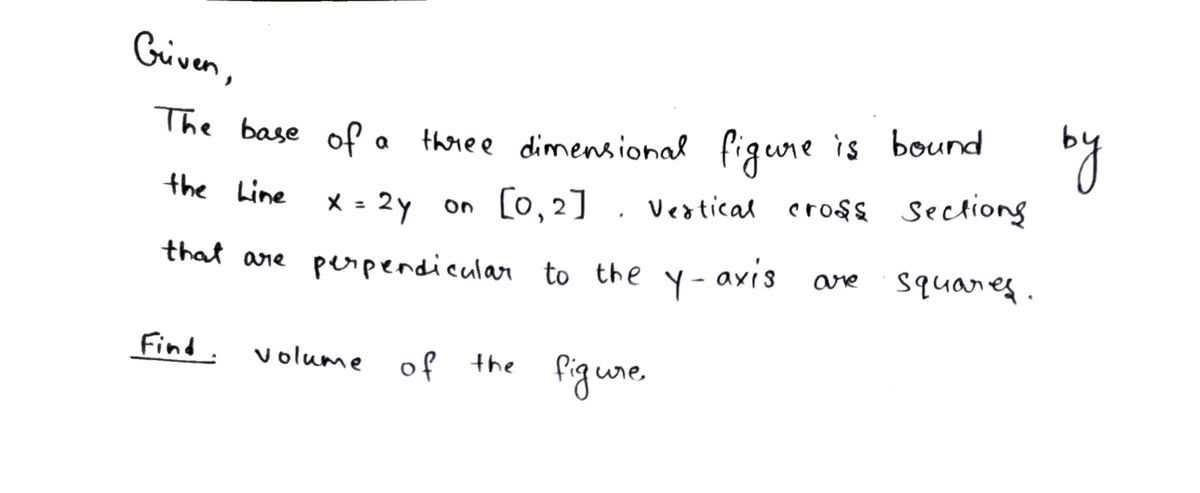 Given,
The base of a three dimensional figure is bound by
the Line x = 2y on [0,2] . Vertical cross sections
that are perpendicular to the y-axis are squares.
Find: volume of the figure